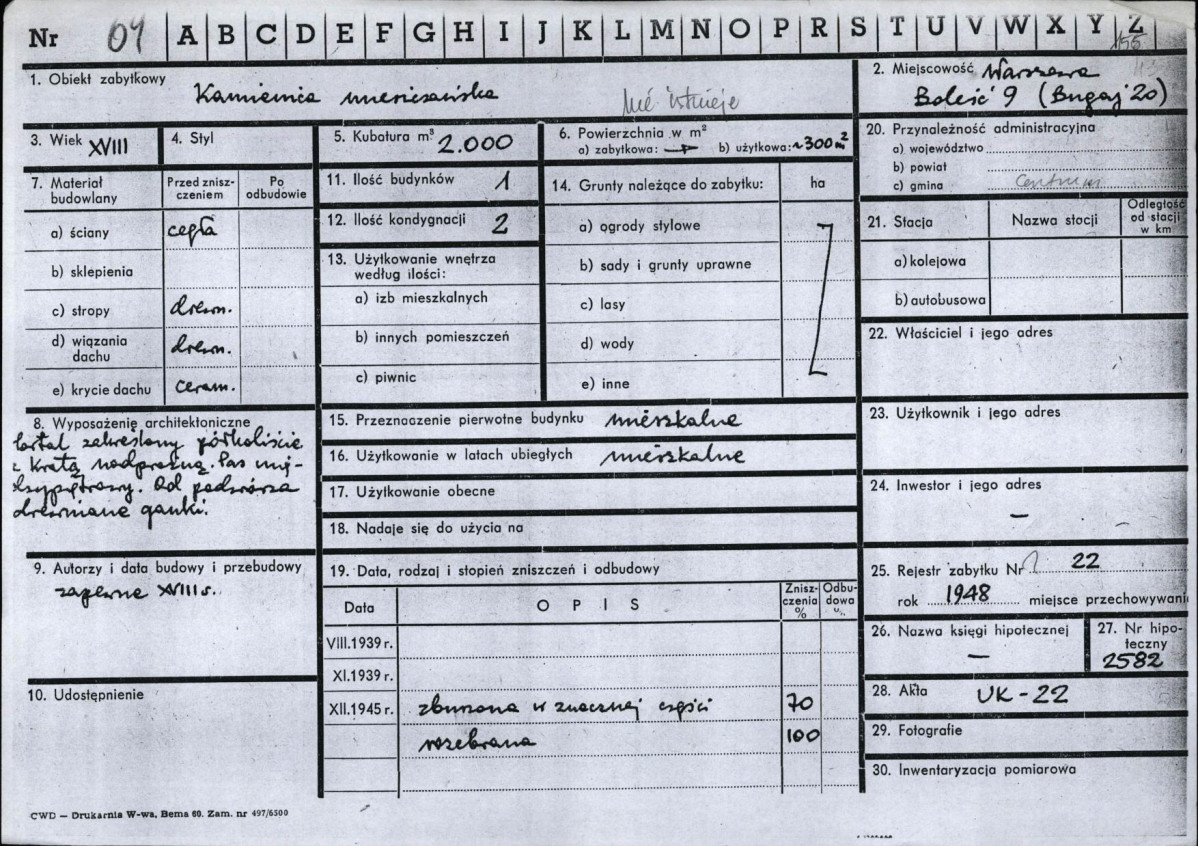 Nr 07 A B C D E F G H I J K L M N O P R S T U V W X Y Z
155
1. Obiekt zabytkowy
Kamienica mieszczańska
nie istnieje
2. Miejscowość Warszawa
Boleść 9 (Bugaj 20)
3. Wiek XVIII
4. Styl
5. Kubatura m³ 2.000
6. Powierzchnia w m²
a) zabytkowa: — b) użytkowa: ~300 m²
7. Materiał budowlany
Przed zniszczeniem
Po odbudowie
a) ściany cegła
b) sklepienia
c) stropy drewn.
d) wiązania dachu drewn.
e) krycie dachu ceram.
8. Wyposażenie architektoniczne
Portal zakreślony półkoliście
z kratą nadprożną. Pas mię-
dzypiętrowy. Od podwórza
drewniane ganki.
9. Autorzy i data budowy i przebudowy
zapewne XVIII s.
10. Udostępnienie
11. Ilość budynków 1
12. Ilość kondygnacji 2
13. Użytkowanie wnętrza
według ilości:
a) izb mieszkalnych
b) innych pomieszczeń
c) piwnic
14. Grunty należące do zabytku: ha
a) ogrody stylowe
b) sady i grunty uprawne
c) lasy
d) wody
e) inne
15. Przeznaczenie pierwotne budynku mieszkalne
16. Użytkowanie w latach ubiegłych mieszkalne
17. Użytkowanie obecne
18. Nadaje się do użycia na
19. Data, rodzaj i stopień zniszczeń i odbudowy
Data
O P I S
Znisz-
czenia
%
Odbu-
dowa
%
VIII.1939 r.
XI.1939 r.
XII.1945 r. zburzona w znacznej części 70
rozebrana 100
20. Przynależność administracyjna
a) województwo
b) powiat
c) gmina Centrum
21. Stacja
Nazwa stacji
Odległość
od stacji
w km
a) kolejowa
b) autobusowa
22. Właściciel i jego adres
23. Użytkownik i jego adres
24. Inwestor i jego adres
—
25. Rejestr zabytku Nr 22
rok 1948 miejsce przechowywani
26. Nazwa księgi hipotecznej
—
27. Nr hipo-
teczny
2582
28. Akta UK-22
29. Fotografie
30. Inwentaryzacja pomiarowa
CWD — Drukarnia W-wa, Bema 60. Zam. nr 497/6500